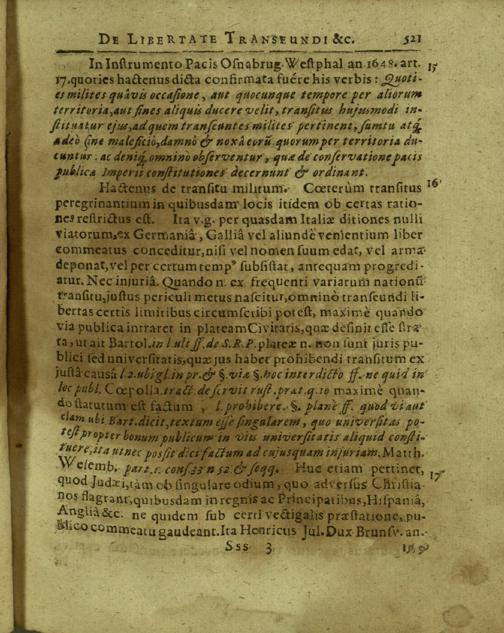 DE LIBERTATE TRANSEUNDI &c. 521
In Instrumento Pacis Osnabrug. Westphal an 1648. art. 15
17. quoties hactenus dicta confirmata fuêre his verbis: Quoti-
es milites quâvis occasione, aut quocunque tempore per aliorum
territoria, aut fines aliquis ducere velit, transitus hujusmodi in-
stituatur ejus, ad quem transeuntes milites pertinent, sumtu atq́;
adeò sine maleficio, damnô & noxâ eorũ. quorum per territoria du-
cuntur. ac deniq́; omninò observentur, quæ de conservatione pacis
publicæ Imperii constitutiones decernunt & ordinant.
Hactenus de transitu militum. Cœterùm transitus 16
peregrinantium in quibusdam locis itidem ob certas ratio-
nes restrictus est. Ita v. g. per quasdam Italiæ ditiones nulli
viatorum, ex Germaniâ, Galliâ vel aliundè venientium liber
commeatus conceditur, nisi vel nomen suum edat, vel arma
deponat, vel per certum tempꝰ subsistat, antequam progredi-
atur. Nec injuriâ. Quando n. ex frequenti variarum nationũ
transitu, justus periculi metus nascitur, omninò transeundi li-
bertas certis limitibus circumscribi potest, maximè quando
via publica intraret in plateam Civitatis, quæ definit esse stra-
ta, ut ait Bartol. in l. ult ff. de S. R. P. plateæ n. non sunt juris pu-
blici sed universitatis, quæ jus habet prohibendi transitum ex
justâ causâ l 2. ubi gl. in pr. & §. viæ §. hoc interdicto ff. ne quid in
loc publ. Cœpolla. tract. de servit rust. præt. q. 10 maximè quan-
do statutum est factum, l. prohibere. §. planè ff. quod vi aut
clam ubi Bart. dicit, textum esse singularem, quo universitas po-
test propter bonum publicum in viis universitatis aliquid consti-
tuere, ita ut nec possit dici factum ad cujusquam injuriam. Matth.
Wesemb. part. 1. cons. 33 n 52 & seqq. Huc etiam pertinet, 17
quod Judæi, tàm ob singulare odium, quo adversus Christia-
nos flagrant, quibusdam in regnis ac Principatibus, Hispaniâ,
Angliâ &c. ne quidem sub certi vectigalis præstatione, pu-
blico commeatu gaudeant. Ita Henricus Jul. Dux Brunsv. an.
Sss 3